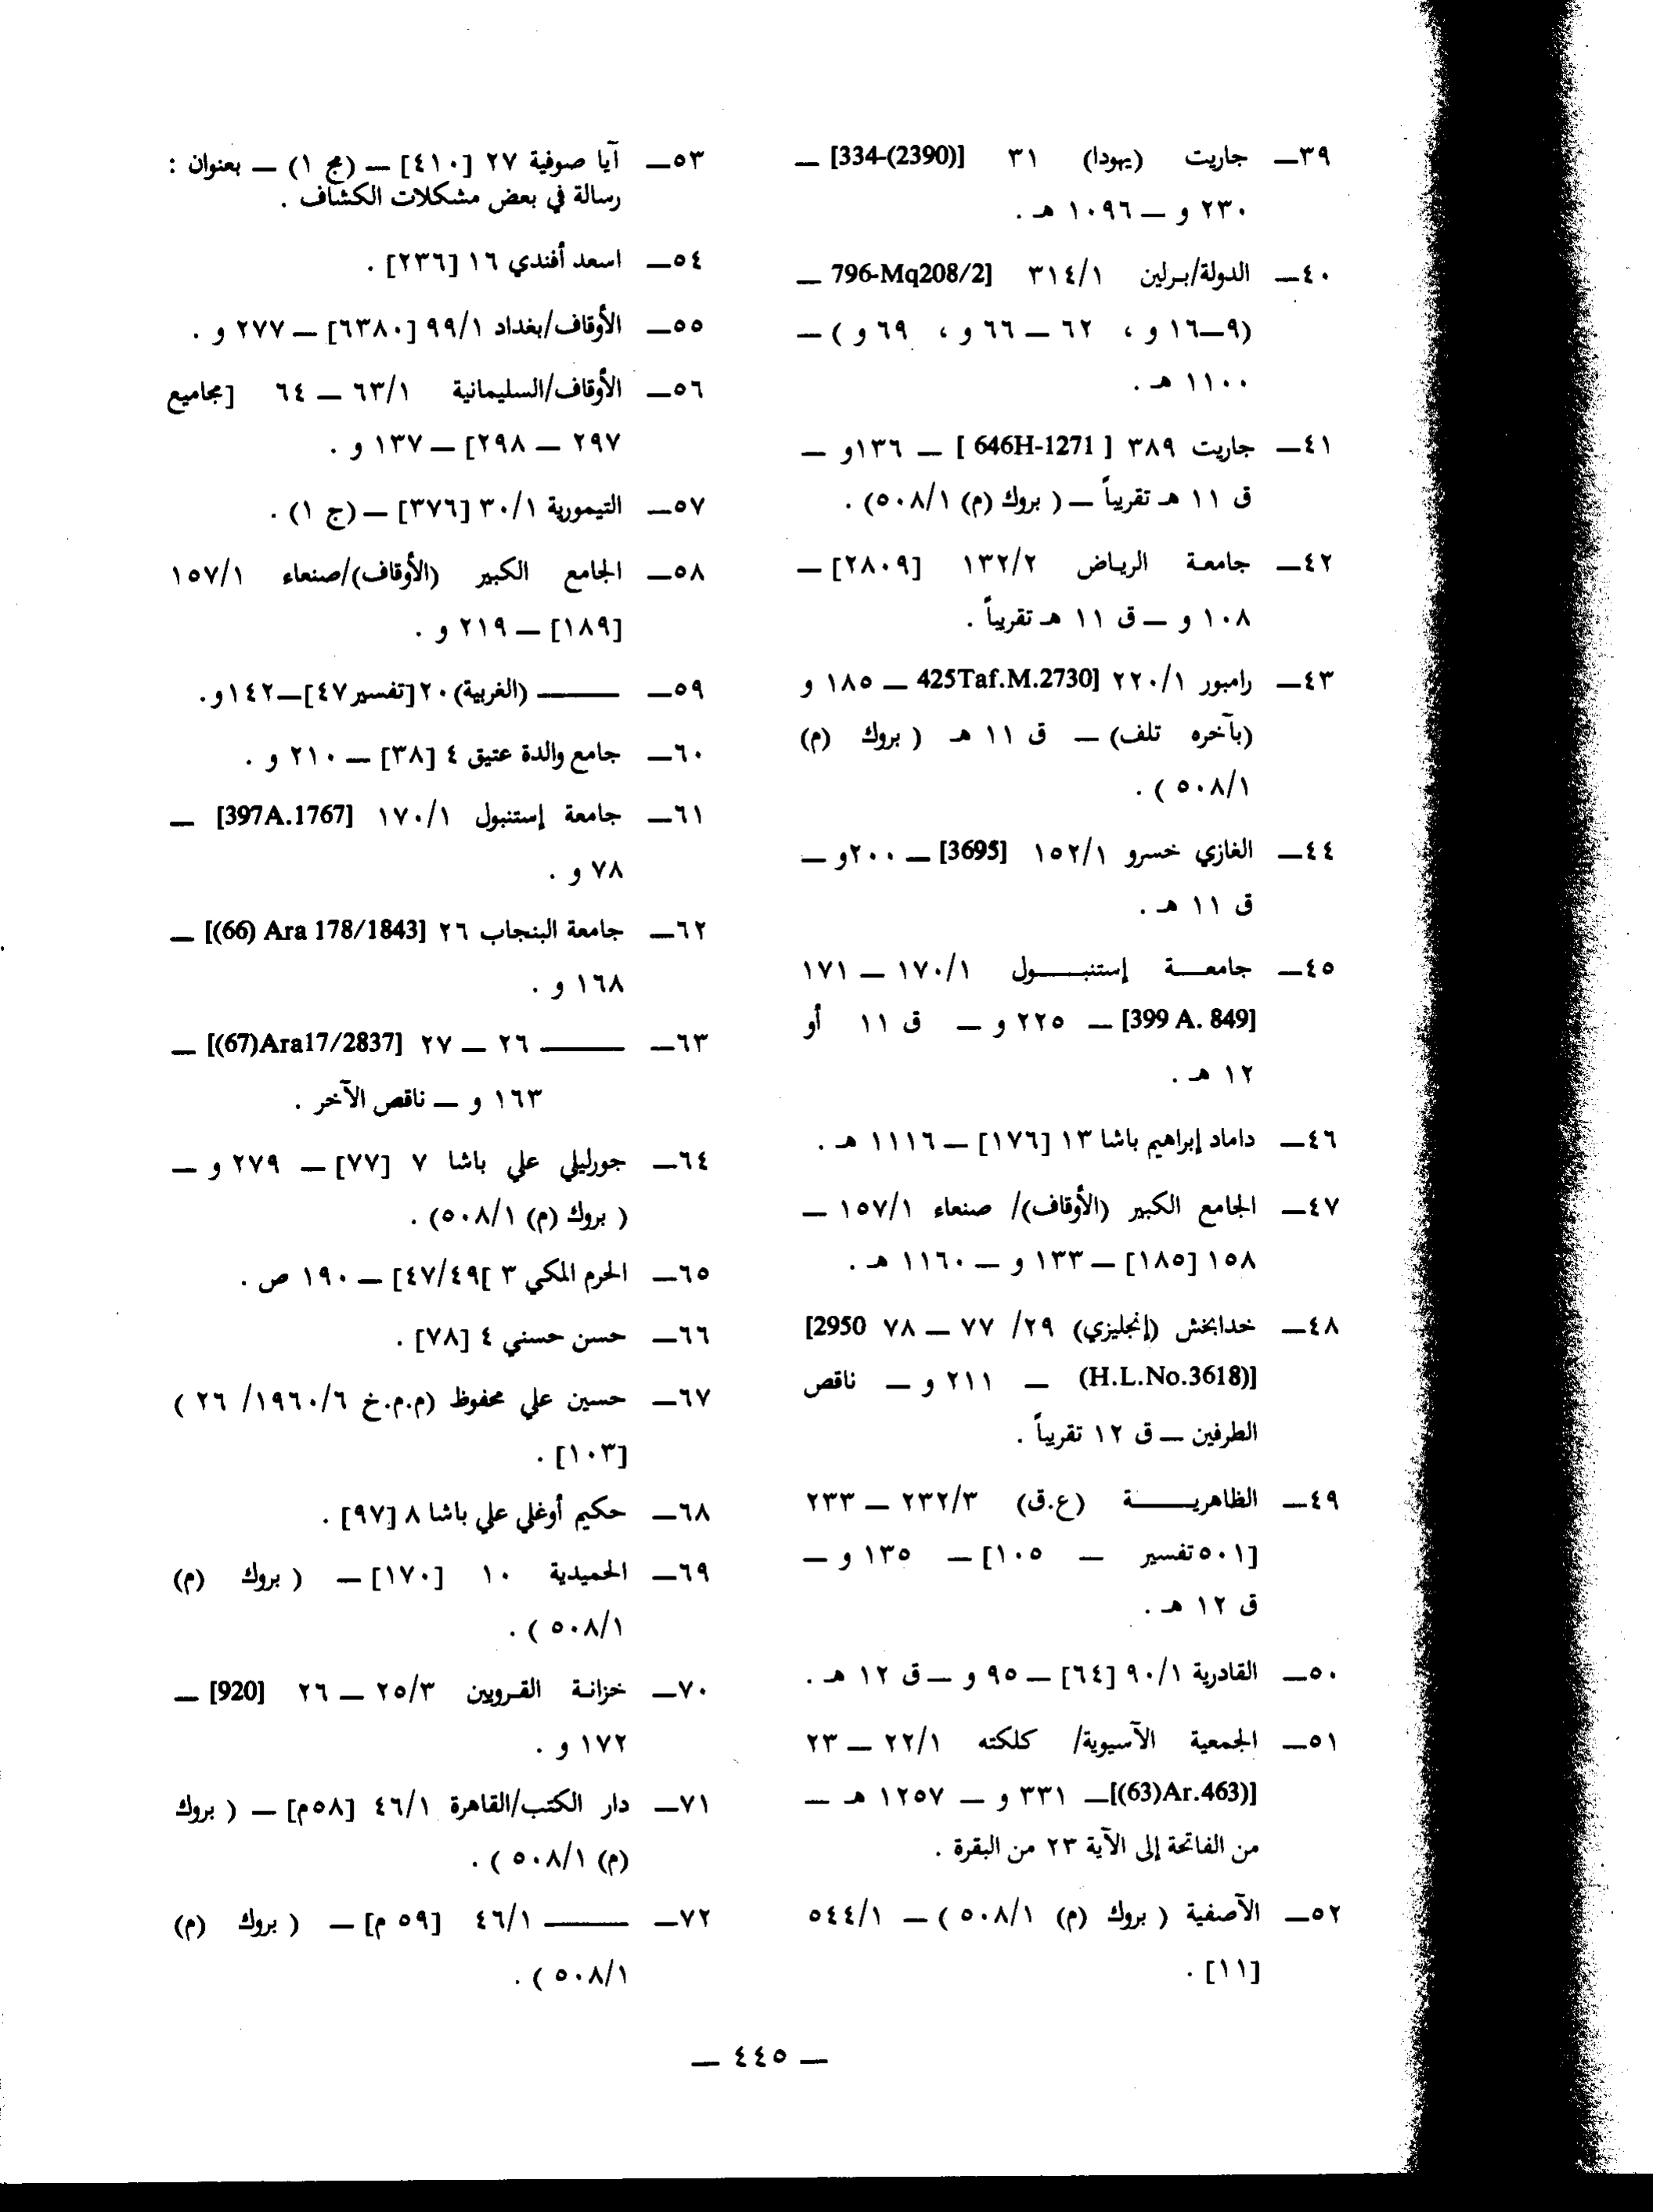 ٣٩ـ جاريت (يهودا) ٣١ [334-(2390)] ـ
٢٣٠ و ـ ١٠٩٦ هـ .
٤٠ـ الدولة/بـرلين ٣١٤/١ [796-Mq208/2 ـ
(٩ـ١٦ و ، ٦٢ ـ ٦٦ و ، ٦٩ و ) ـ
١١٠٠ هـ .
٤١ـ جاريت ٣٨٩ [ 646H-1271 ] ـ ١٣٦و ـ
ق ١١ هـ تقريباً ـ ( بروك (م) ٥٠٨/١) .
٤٢ـ جامعـة الريـاض ١٣٢/٢ [٢٨٠٩] ـ
١٠٨ و ـ ق ١١ هـ تقريباً .
٤٣ـ رامبور ٢٢٠/١ [425Taf.M.2730 ـ ١٨٥ و
(بآخره تلف) ـ ق ١١ هـ ( بروك (م)
٥٠٨/١ ) .
٤٤ـ الغازي خسرو ١٥٢/١ [3695] ـ ٢٠٠و ـ
ق ١١ هـ .
٤٥ـ جامعــة إستنبــول ١٧٠/١ ـ ١٧١
[399 A. 849] ـ ٢٢٥ و ـ ق ١١ أو
١٢ هـ .
٤٦ـ داماد إبراهيم باشا ١٣ [١٧٦] ـ ١١١٦ هـ .
٤٧ـ الجامع الكبير (الأوقاف)/ صنعاء ١٥٧/١ ـ
١٥٨ [١٨٥] ـ ١٣٣ و ـ ١١٦٠ هـ .
٤٨ـ خدابخش (إنجليزي) ٢٩/ ٧٧ ـ ٧٨ [2950
(H.L.No.3618)] ـ ٢١١ و ـ ناقص
الطرفين ـ ق ١٢ تقريباً .
٤٩ـ الظاهريـــة (ع.ق) ٢٣٢/٣ ـ ٢٣٣
[٥٠١تفسير ـ ١٠٥] ـ ١٣٥ و ـ
ق ١٢ هـ .
٥٠ـ القادرية ٩٠/١ [٦٤] ـ ٩٥ و ـ ق ١٢ هـ .
٥١ـ الجمعية الآسيوية/ كلكته ٢٢/١ ـ ٢٣
[(63)Ar.463)] ـ ٣٣١ و ـ ١٢٥٧ هـ ـ
من الفاتحة إلى الآية ٢٣ من البقرة .
٥٢ـ الآصفية ( بروك (م) ٥٠٨/١ ) ـ ٥٤٤/١
[١١] .
٥٣ـ آيا صوفية ٢٧ [٤١٠] ـ (مج ١) ـ بعنوان :
رسالة في بعض مشكلات الكشاف .
٥٤ـ اسعد أفندي ١٦ [٢٣٦] .
٥٥ـ الأوقاف/بغداد ٩٩/١ [٦٣٨٠] ـ ٢٧٧ و .
٥٦ـ الأوقاف/السليمانية ٦٣/١ ـ ٦٤ [مجاميع
٢٩٧ ـ ٢٩٨] ـ ١٣٧ و .
٥٧ـ التيمورية ٣٠/١ [٣٧٦] ـ (ج ١) .
٥٨ـ الجامع الكبير (الأوقاف)/صنعاء ١٥٧/١
[١٨٩] ـ ٢١٩ و .
٥٩ـ ــــــ (الغربية) ٢٠ [تفسير٤٧] ـ ١٤٢و .
٦٠ـ جامع والدة عتيق ٤ [٣٨] ـ ٢١٠ و .
٦١ـ جامعة إستنبول ١٧٠/١ [397A.1767] ـ
٧٨ و .
٦٢ـ جامعة البنجاب ٢٦ [(66) Ara 178/1843)] ـ
١٦٨ و .
٦٣ـ ــــــ ٢٦ ـ ٢٧ [(67)Ara17/2837)] ـ
١٦٣ و ـ ناقص الآخر .
٦٤ـ جورليلي علي باشا ٧ [٧٧] ـ ٢٧٩ و ـ
( بروك (م) ٥٠٨/١) .
٦٥ـ الحرم المكي ٣ ]٤٧/٤٩] ـ ١٩٠ ص .
٦٦ـ حسن حسني ٤ [٧٨] .
٦٧ـ حسين علي محفوظ (م.م.خ ١٩٦٠/٦/ ٢٦ )
[١٠٣] .
٦٨ـ حكيم أوغلي علي باشا ٨ [٩٧] .
٦٩ـ الحميدية ١٠ [١٧٠] ـ ( بروك (م)
٥٠٨/١ ) .
٧٠ـ خزانـة القـرويين ٢٥/٣ ـ ٢٦ [920] ـ
١٧٢ و .
٧١ـ دار الكتب/القاهرة ٤٦/١ [٥٨م] ـ ( بروك
(م) ٥٠٨/١ ) .
٧٢ـ ــــــ ٤٦/١ [٥٩ م] ـ ( بروك (م)
٥٠٨/١ ) .
ـ ٤٤٥ ـ